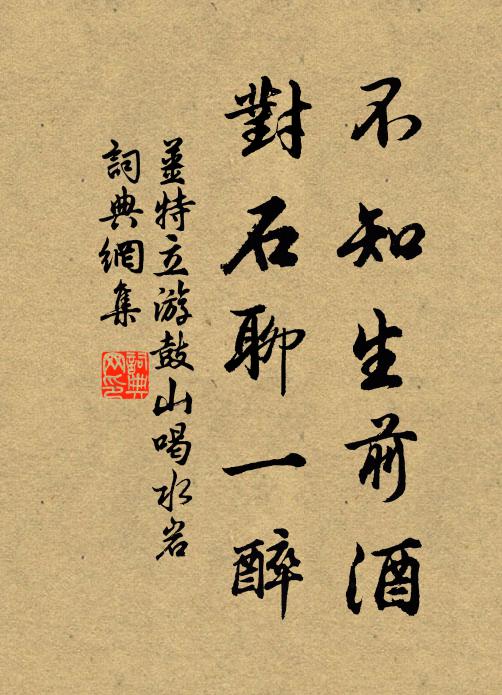 不知生前酒
對石聊一醉
姜特立游鼓山喝水岩
詞典網集
詞典网印